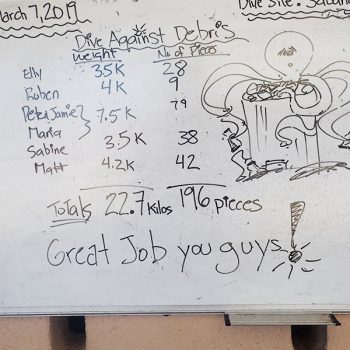 March 7, 2019
Dive Site: Sabana
Dive Against Debris
Weight No of Pieces
Elly 3.5K 28
Ruben 4K 9
Peter, Jamie 7.5K 79
Maria
Sabine 3.5K 38
Matt 4.2K 42
Totals 22.7 Kilos 196 pieces
Great Job you guys!